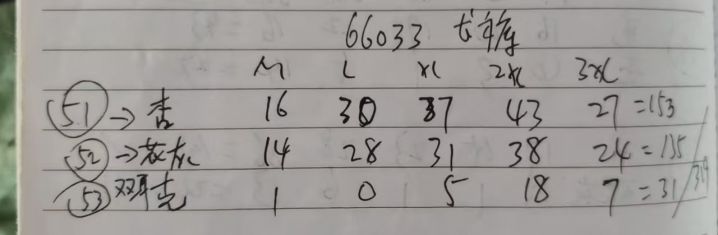 66033 长裤
M L XL 2XL 3XL
51 → 杏 16 30 37 43 27 =153
52 → 花灰 14 28 31 38 24 =135
53 1 0 5 18 7 =31/319